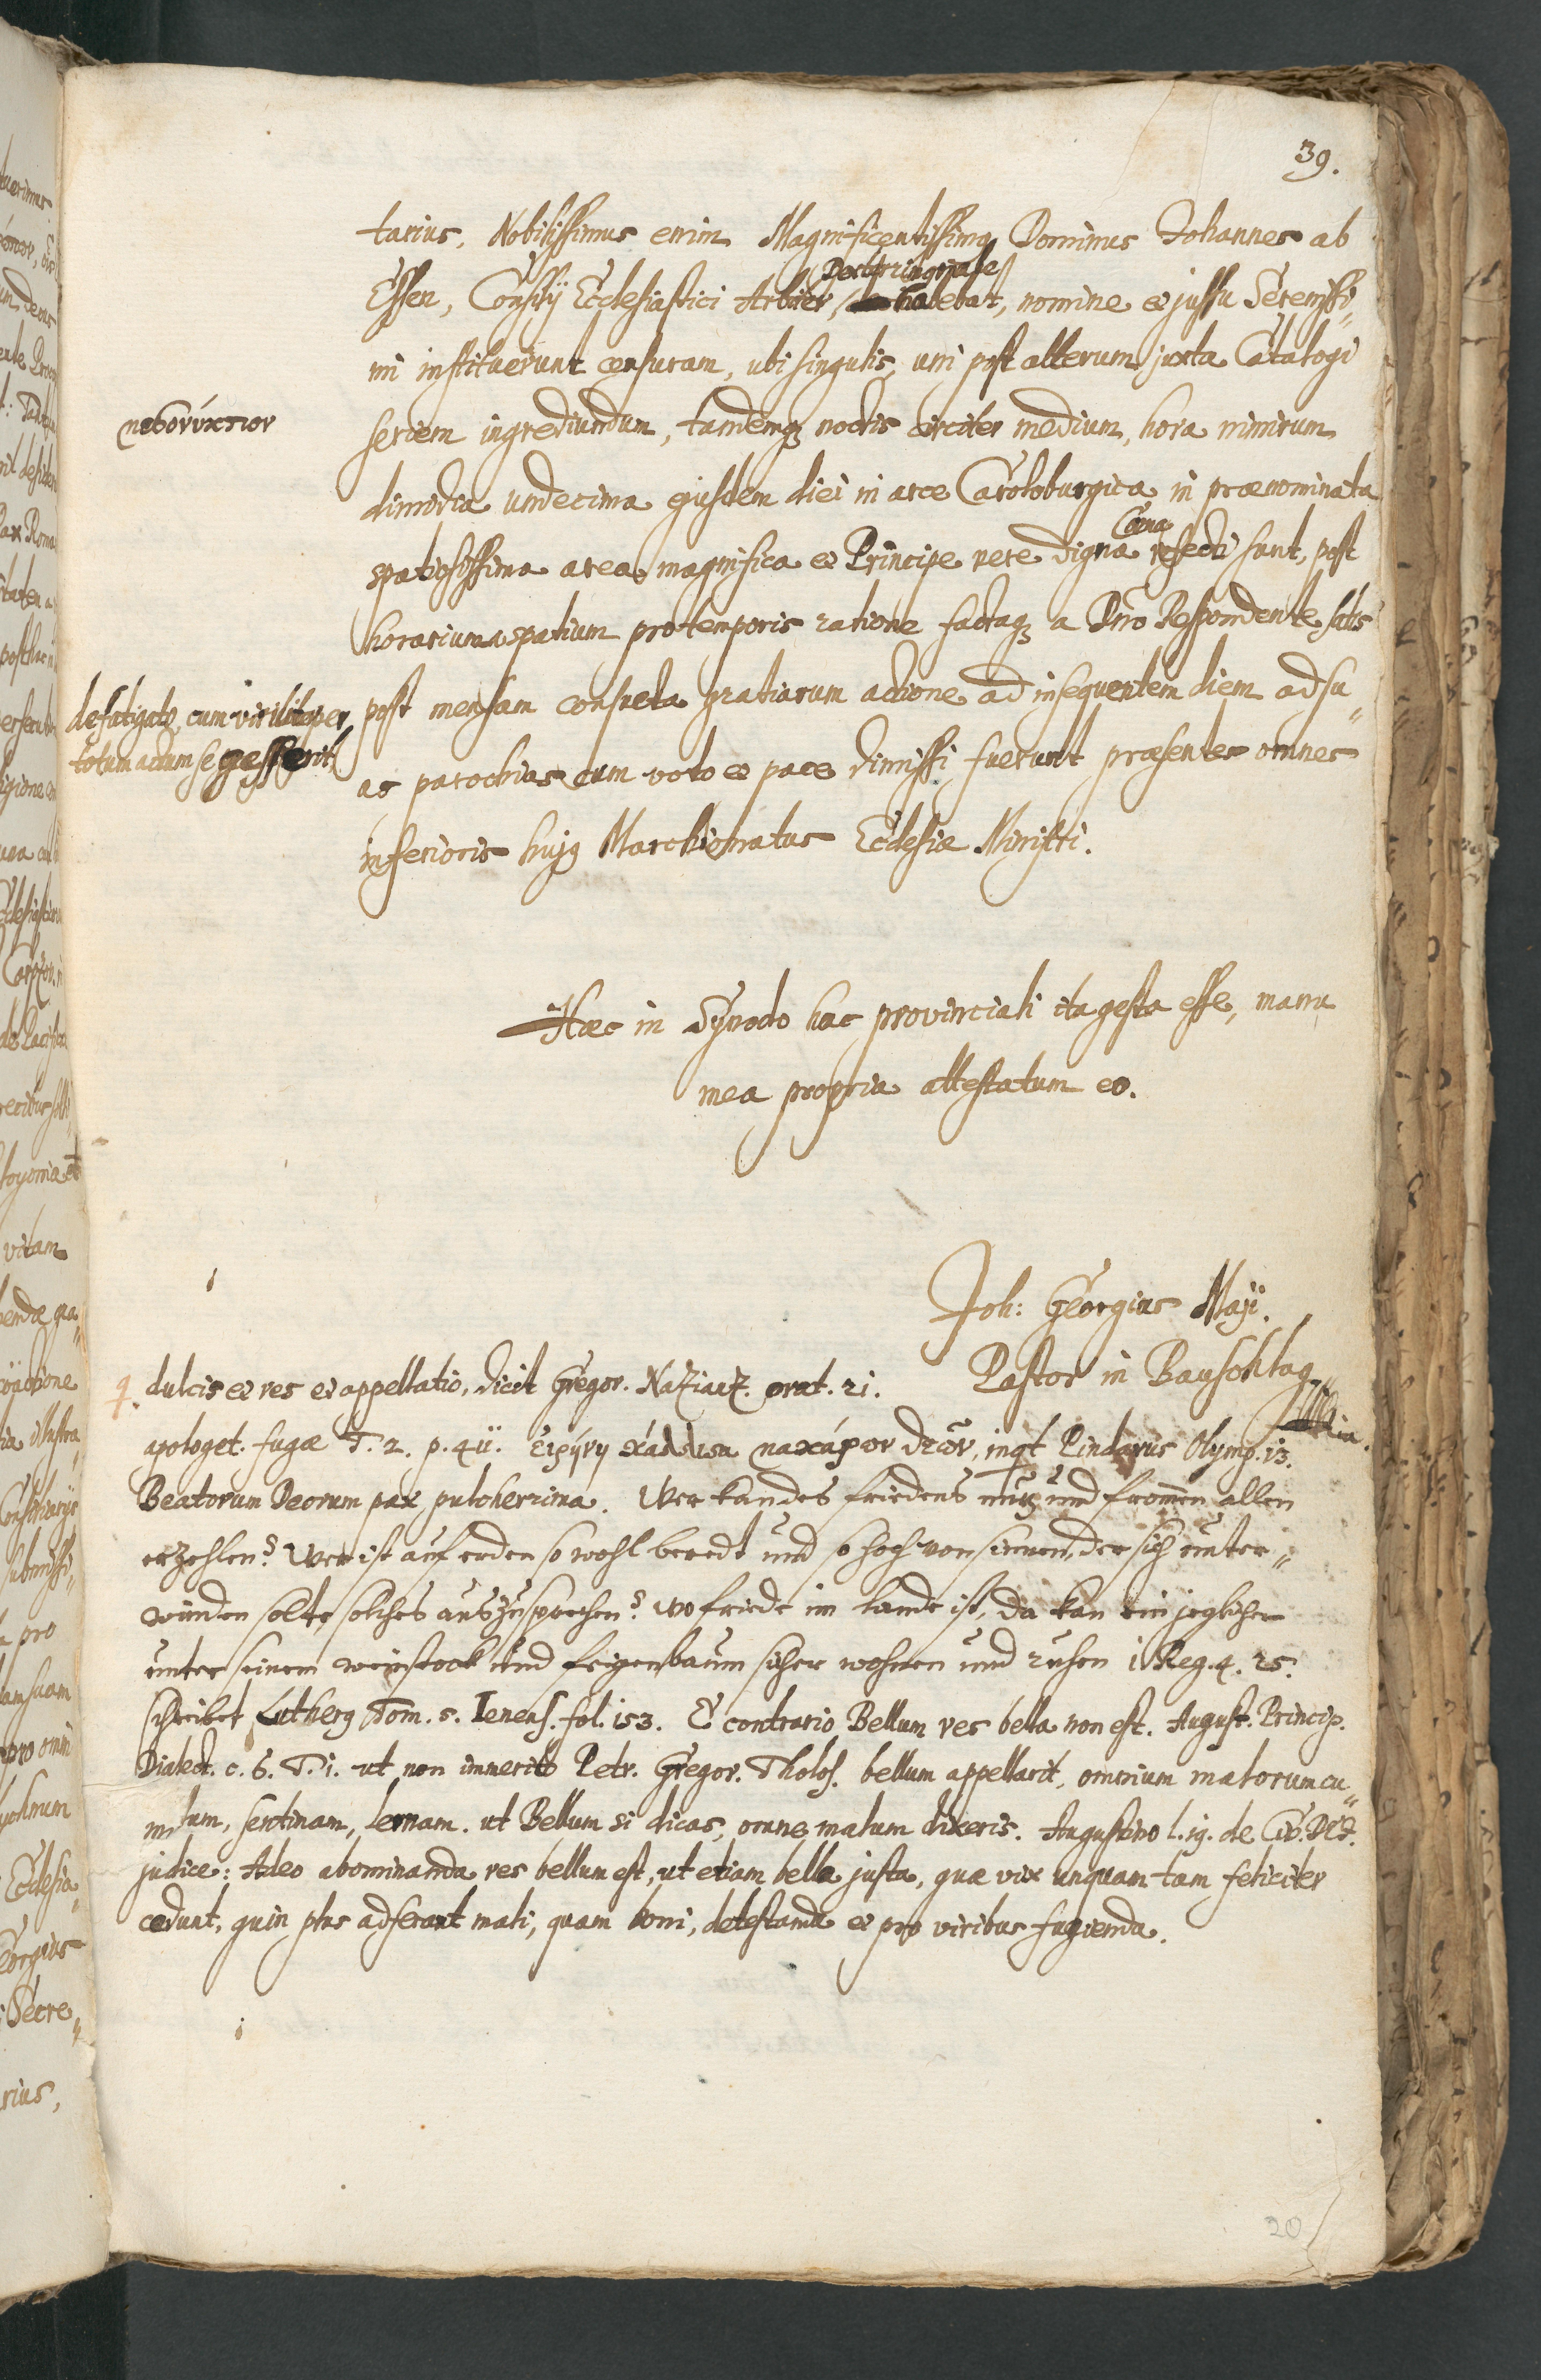 39.
tarius, Nobilissimus enim Magnificentissimq Dominus Johannes ab
Essen, Consilij Ecclesiastici Arbiter, habebat, nomine et jussu Serenissi„
mi instituerunt censuram, ubi singulis, uni post alterum juxta Catalogi
μεσονύκτιον
seriem ingrediundum, tandemq; noctis circiter medium, hora nimirum
dimidia undecima ejusdem diei in arce Caroloburgica in prænominata
Cœna
spatiosissima area magnifica et Principe vere digna refecti sunt, post
horarium spatium pro temporis ratione factaq; a Dno Respondente, satis
defatigatq, cum viriliter per
totum actum se gesserit,
post mensam consueta gratiarum actione ad insequentem diem ad su„
as parochias cum voto et pace dimissi fuerunt præsentes omnes
inferioris hujq Marchionatus Ecclesiæ Ministri.
Hæc in Synodo hac provinciali ita gesta esse, manu
mea propria attestatum eo.
Joh: Georgius Maji.
Pastor in Bauschlag
dulcis et res et appellatio, dicit Gregor. Nazianz. orat. 21.
apologet. fugæ T. 2. p. 411. Εἰρήνη κάλλιστα μακάρων θεῶν, inqt Pindarus Olymp. 13.
Beatorum Deorum pax pulcherrima. Wer kan des friedens nutz und fromen allen
erzehlen? Wer ist auf erden so wohl beredt und so hoch von sinnen, der sich unter„
winden solte solches auszusprechen? Wo friede im lande ist, da kan ein jeglicher
unter seinem weinstock und feigenbaum sicher wohnen und ruhen 1 Reg. 4. 25.
schreibet Lutherq Tom. 5. Ienens. fol. 153. E contrario Bellum res bella non est. August. Princip.
Dialect. c. 6. T. 1. ut non immerito Petr. Gregor. Tholos. bellum appellarit, omnium malorum cu„
mulum, sentinam, lernam. ut Bellum si dicas, omne malum dixeris. Augustino l. 19. de Civ. Dei.
judice: Adeo abominanda res bellum est, ut etiam bella justa, quæ vix unquam tam feliciter
cedunt, quin plus adferant mali, quam boni, detestanda et pro viribus fugienda.
20